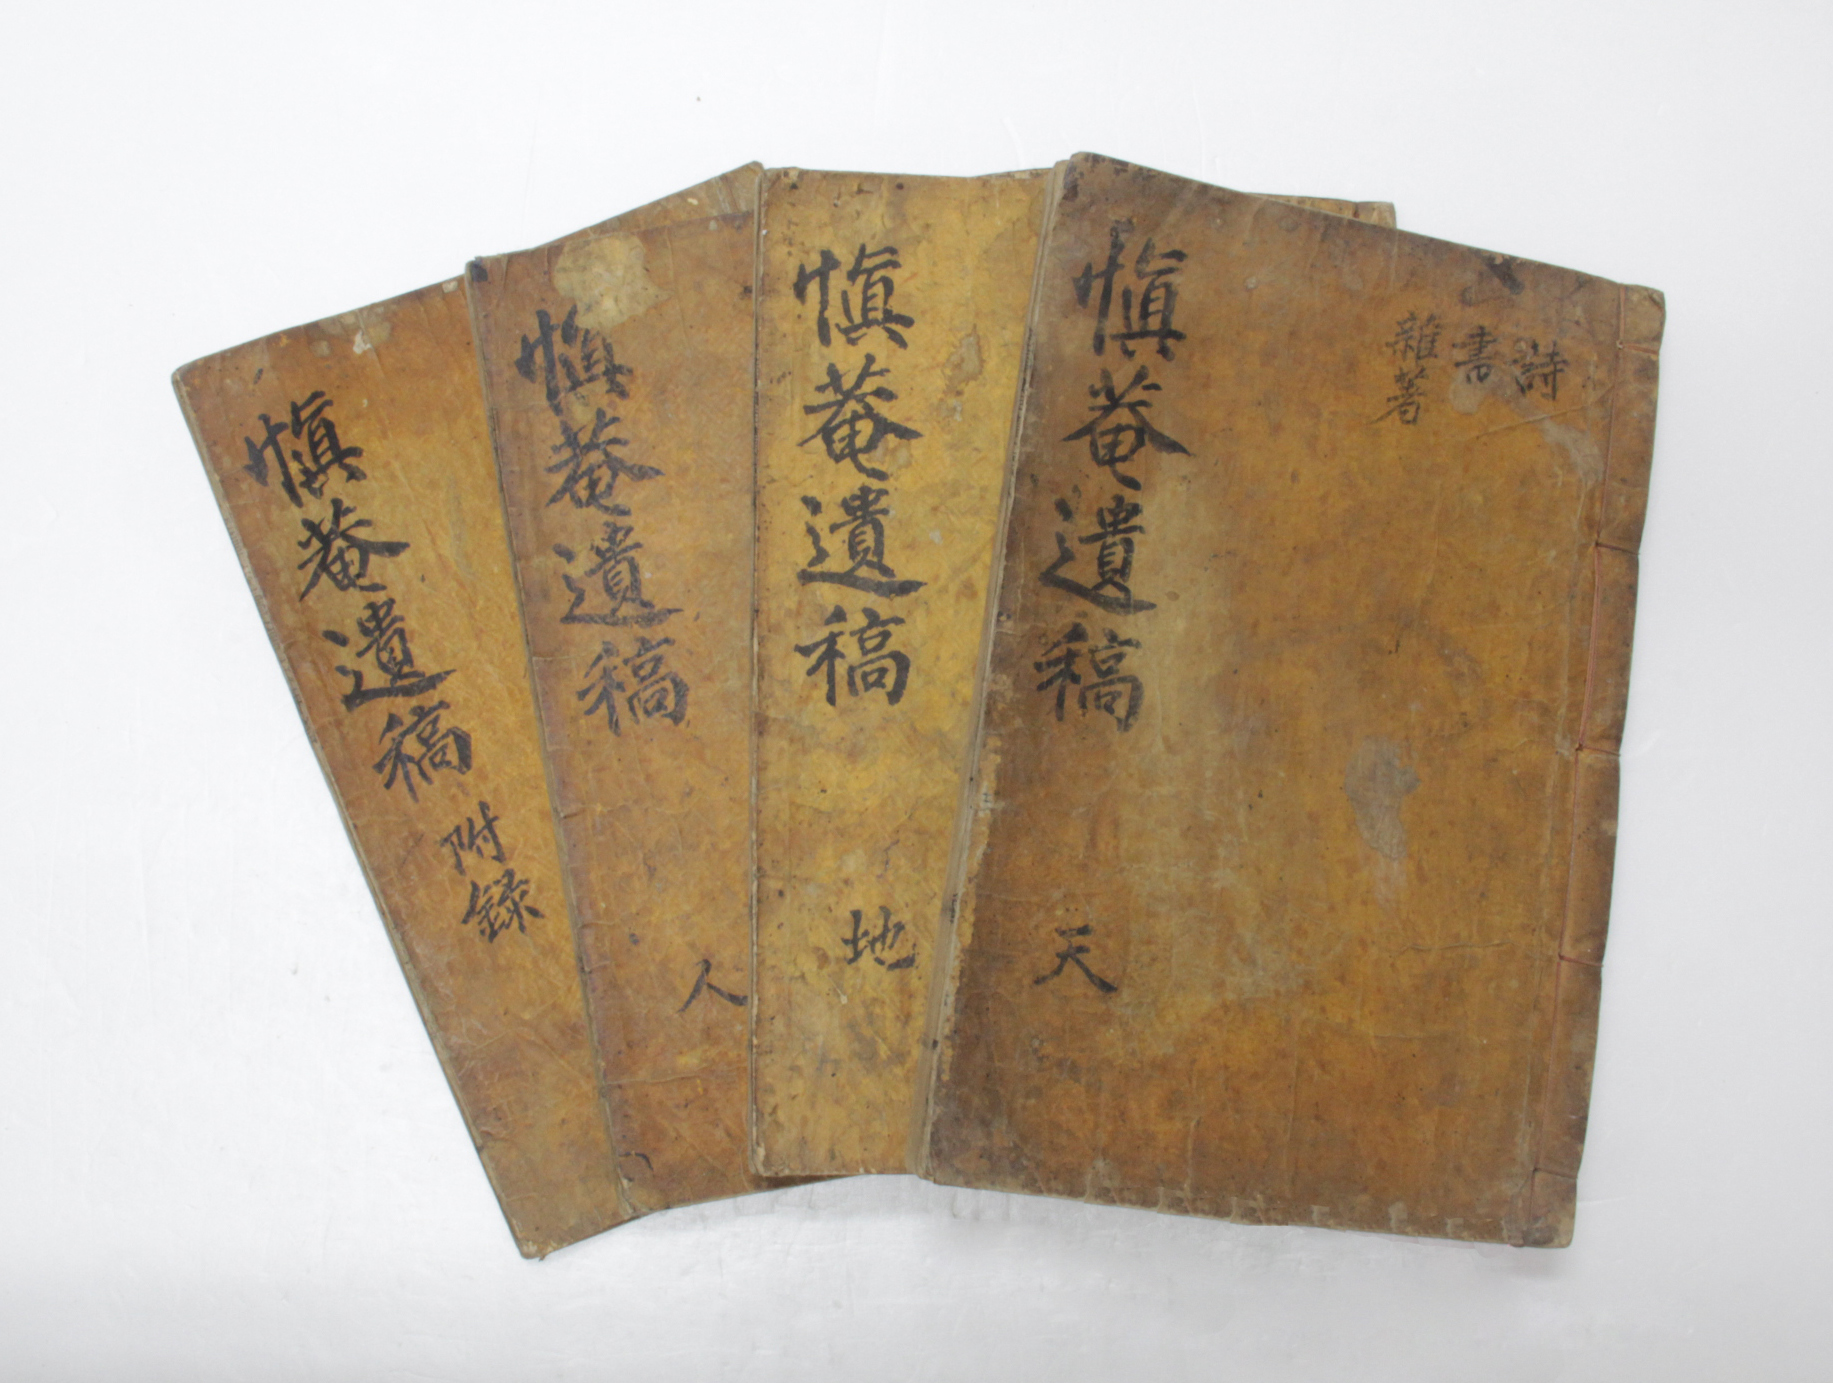 詩
書
雜著
愼菴遺稿 天
愼菴遺稿 地
愼菴遺稿 人
愼菴遺稿 附錄